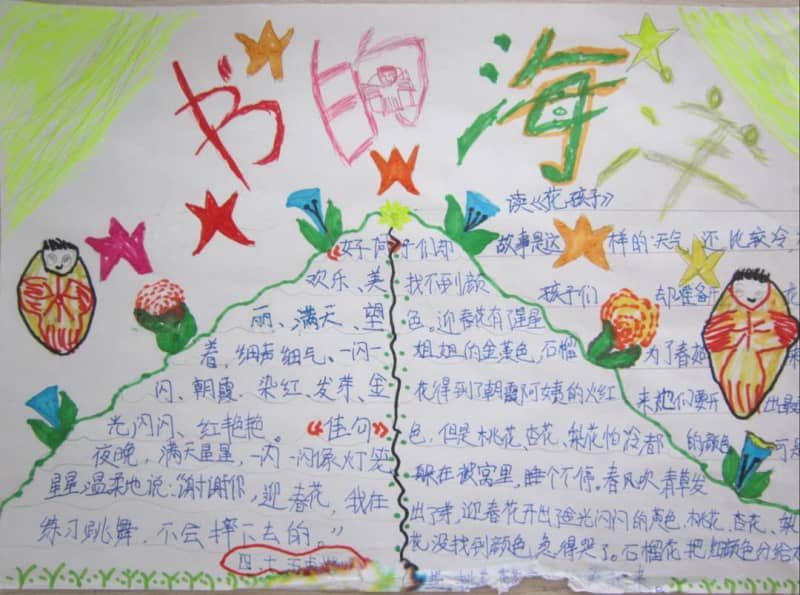 书的海洋
读《花孩子》
《好
欢乐、美
丽、满天、望
着，细声细气、一闪一
闪、朝霞、染红、发芽、金
光闪闪、红艳艳。《佳句》
夜晚，满天星星，一闪一闪像灯笼
星星温柔地说：谢谢你，迎春花，我在
练习跳舞，不会摔下去的。”
子们却
找不到颜
色。迎春花有了星星
姐姐的金黄色，石榴
花得到了朝霞阿姨的火红
色，但是桃花、杏花、梨花怕冷都
躲在被窝里，睡个不停。春风吹青草发
出了芽，迎春花开出金光闪闪的黄色，桃花、杏花、梨
花没找到颜色，急得哭了。石榴花把红颜色分给
故事是这样的天气还比较冷，
孩子们都准备开
为了春姑
来她们要开出最
的颜色